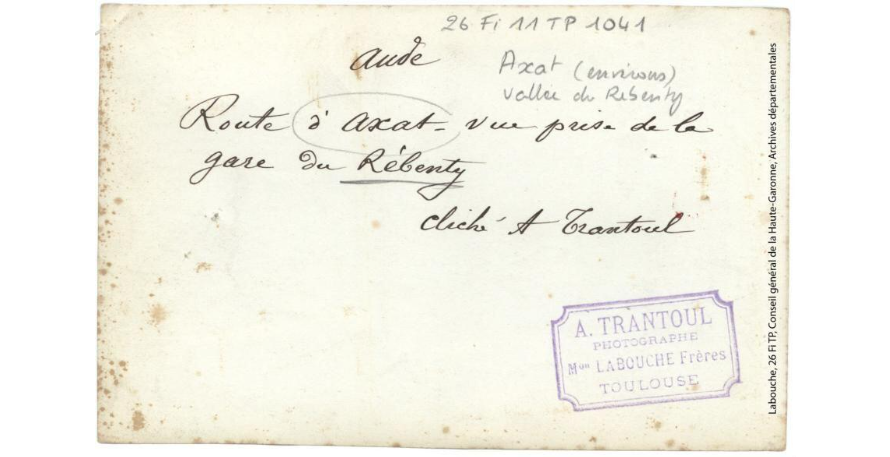 26 Fi 11 TP 1041
Aude
Axat (environs)
vallée du Rébenty
Route d'Axat - vue prise de la
gare du Rébenty
cliché A Trantoul
A. TRANTOUL
PHOTOGRAPHE
Mon LABOUCHE Frères
TOULOUSE
Labouche, 26 Fi TP, Conseil général de la Haute-Garonne, Archives départementales